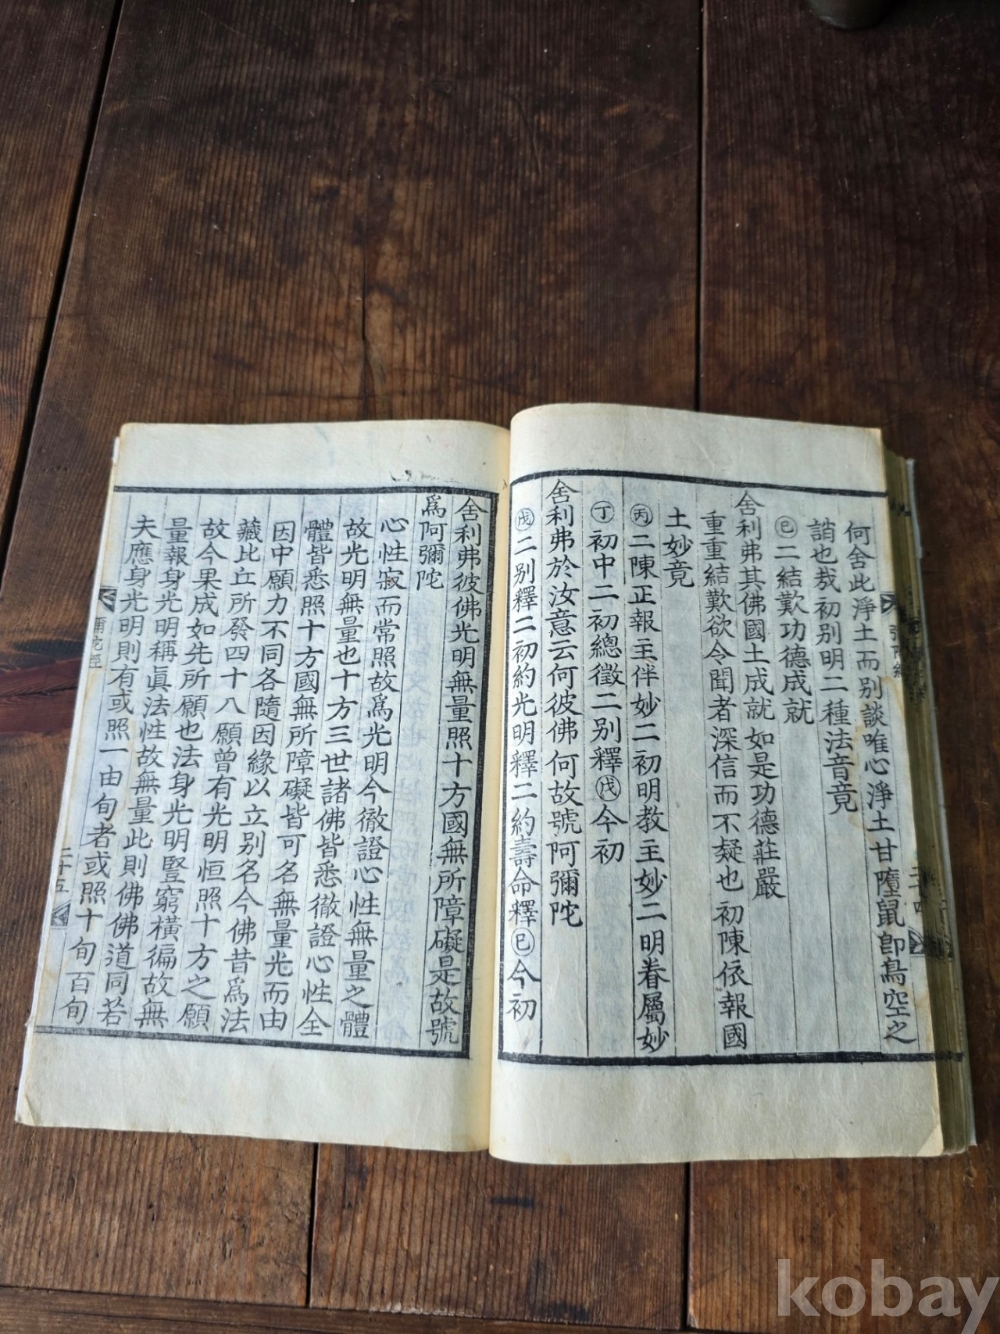 何舍此淨土而別談唯心淨土甘墮鼠卽鳥空之
誚也哉初別明二種法音竟
㊁二結歎功德成就
舍利弗其佛國土成就如是功德莊嚴
重重結歎欲令聞者深信而不疑也初陳依報國
土妙竟
丙二陳正報主伴妙二初明教主妙二明眷屬妙
丁初中二初總徵二別釋戊今初
舍利弗於汝意云何彼佛何故號阿彌陀
戊二別釋二初約光明釋二約壽命釋巳今初
舍利弗彼佛光明無量照十方國無所障礙是故號
爲阿彌陀
心性寂而常照故爲光明今徹證心性無量之體
故光明無量也十方三世諸佛皆悉徹證心性全
體皆悉照十方國無所障礙皆可名無量光而由
因中願力不同各隨因緣以立別名今佛昔爲法
藏比丘所發四十八願曾有光明恒照十方之願
故今果成如先所願也法身光明豎窮橫徧故無
量報身光明稱眞法性故無量此則佛佛道同若
夫應身光明則有或照一由旬者或照十旬百旬
彌陀經
二十五
kobay